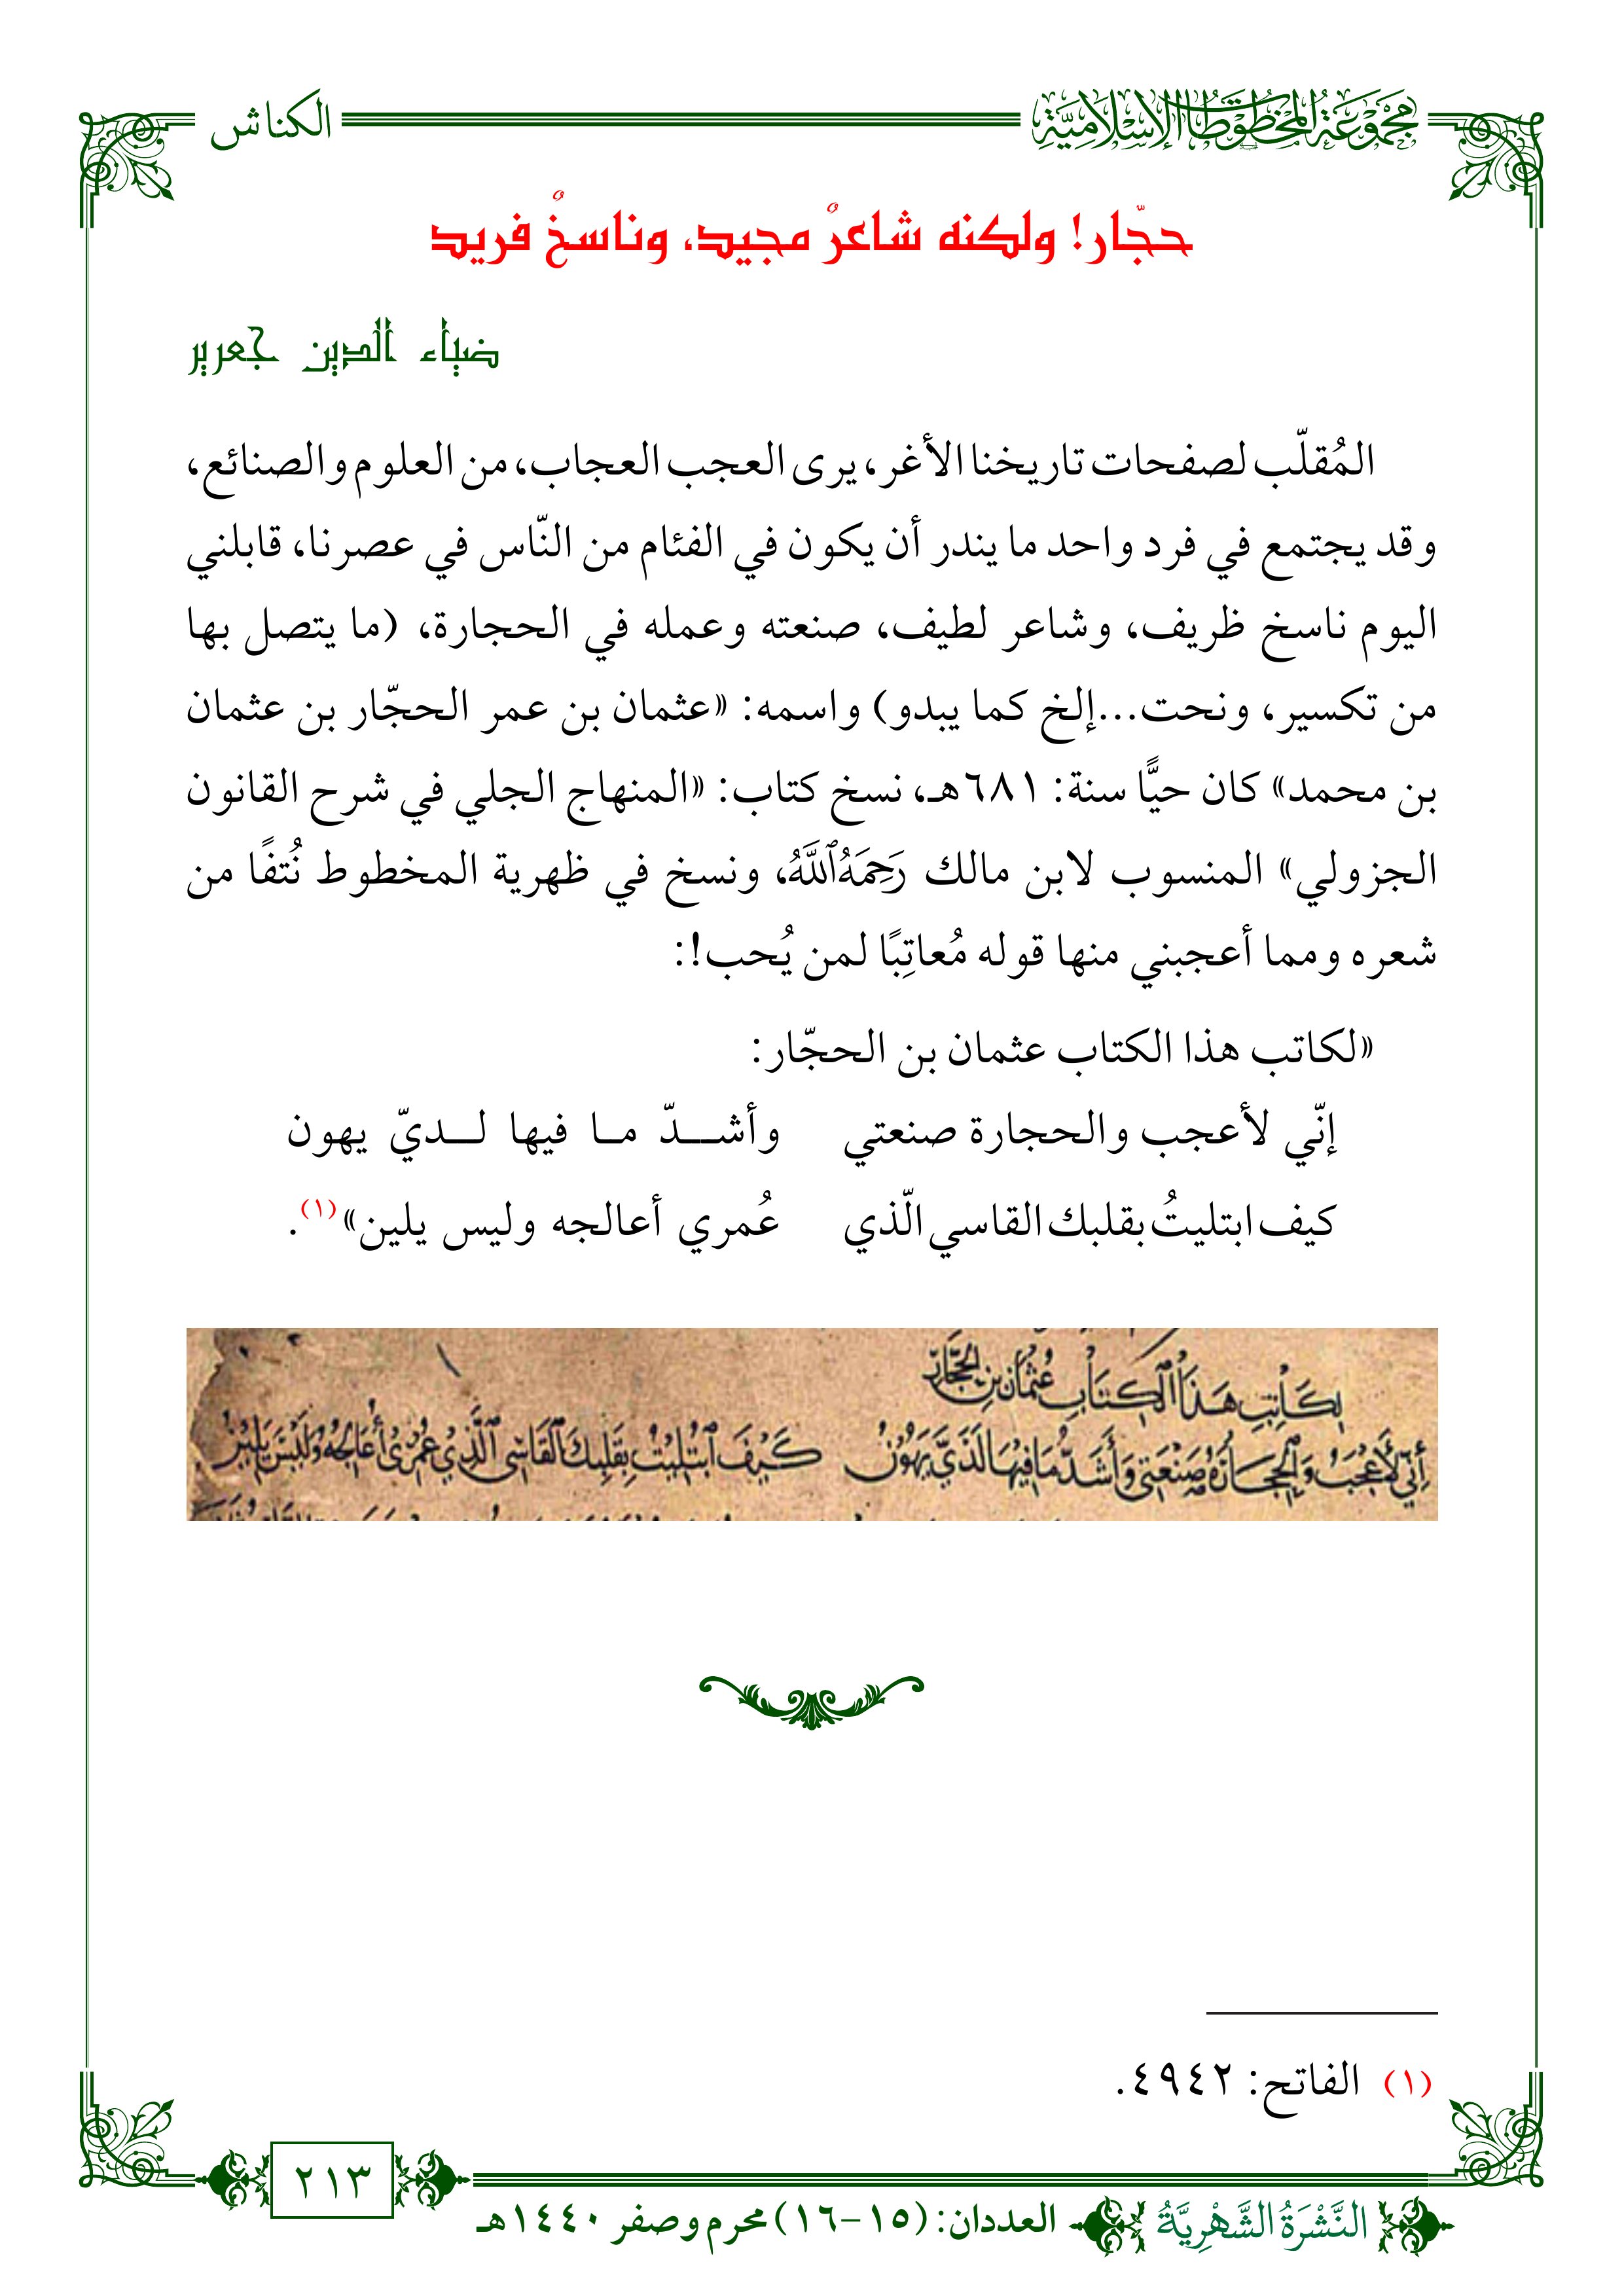 مجموعة المخطوطات الإسلامية
الكناش
حجّار! ولكنه شاعرٌ مجيد، وناسخٌ فريد
ضياء الدين جعرير
المُقلّب لصفحات تاريخنا الأغر، يرى العجب العجاب، من العلوم والصنائع،
وقد يجتمع في فرد واحد ما يندر أن يكون في الفئام من النّاس في عصرنا، قابلني
اليوم ناسخ ظريف، وشاعر لطيف، صنعته وعمله في الحجارة، (ما يتصل بها
من تكسير، ونحت...إلخ كما يبدو) واسمه: «عثمان بن عمر الحجّار بن عثمان
بن محمد» كان حيًّا سنة: ٦٨١هـ، نسخ كتاب: «المنهاج الجلي في شرح القانون
الجزولي» المنسوب لابن مالك رَحِمَهُ ٱللَّهُ، ونسخ في ظهرية المخطوط نُتفًا من
شعره ومما أعجبني منها قوله مُعاتِبًا لمن يُحب!:
«لكاتب هذا الكتاب عثمان بن الحجّار:
إنّي لأعجب والحجارة صنعتي وأشــدّ مـا فيها لـديّ يهون
كيف ابتليتُ بقلبك القاسي الّذي عُمري أعالجه وليس يلين»(١).
لِكَاتِبِ هَذَا الكِتَابِ عُثْمَان بن الحَجَّارِ
إنّي لَأَعْجَبُ وَالحِجَارَةُ صَنْعَتي وَأَشَدُّ مَا فِيهَا لَدَيَّ يَهُونُ كَيْفَ ابْتُلِيْتُ بِقَلْبِكَ القَاسِي الَّذِي عُمْرِي أُعَالِجُهُ وَلَيْسَ يَلِيْنُ
(١) الفاتح: ٤٩٤٢.
٢١٣
النَّشْرَةُ الشَّهْرِيَّةُ العددان: (١٥-١٦) محرم وصفر ١٤٤٠هـ